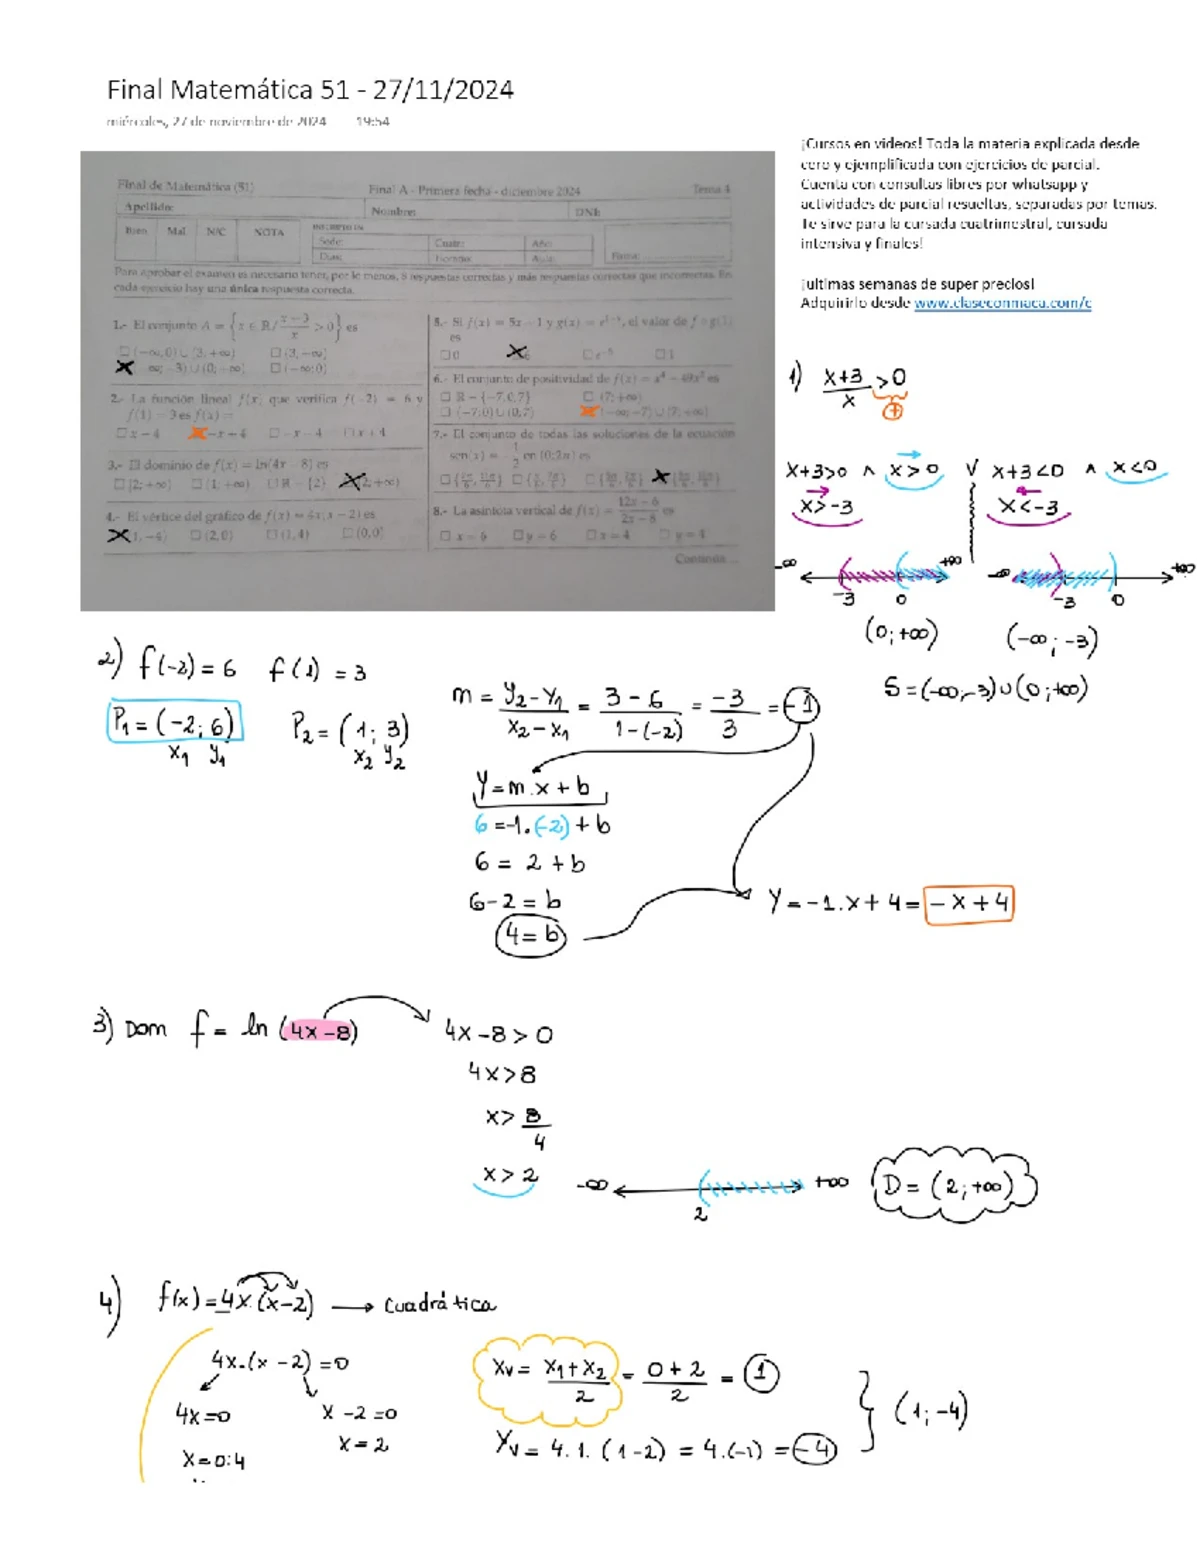 Final Matemática 51 - 27/11/2024
miércoles, 27 de noviembre de 2024 19:54
¡Cursos en videos! Toda la materia explicada desde
cero y ejemplificada con ejercicios de parcial.
Cuenta con consultas libres por whatsapp y
actividades de parcial resueltas, separadas por temas.
Te sirve para la cursada cuatrimestral, cursada
intensiva y finales!
¡ultimas semanas de super precios!
Adquirirlo desde www.claseconmaca.com/c
Final de Matemática (51) Final A - Primera fecha - diciembre 2024 Tema 4
Apellido: Nombre: DNI:
Bien Mal N/C NOTA
INSCRIPTO EN:
Sede: Cuatr: Año:
Días: Horario: Aula: Firma:
Para aprobar el examen es necesario tener, por lo menos, 8 respuestas correctas y más respuestas correctas que incorrectas. En
cada ejercicio hay una única respuesta correcta.
1.- El conjunto
2.- La función lineal f(x) que verifica f(-2) = 6 y
f(1) = 3 es f(x) =
□ x - 4 -x + 4 □ -x - 4 □ x + 4
3.- El dominio de f(x) = ln(4x - 8) es
□ [2; +∞) □ (1; +∞) □ R - {2} 2; +∞)
4.- El vértice del gráfico de f(x) = 4x(x - 2) es
1; -4) □ (2,0) □ (1,4) □ (0,0)
5.- Si f(x) = 5x + 1 y
el valor de
es
6.- El conjunto de positividad de f(x) = x⁴ - 49x² es
□ R - {-7,0,7} □ (7; +∞)
□ (-7;0) ∪ (0;7) (-∞; -7) ∪ (7; +∞)
7.- El conjunto de todas las soluciones de la ecuación
sen(x) = -1/2 en [0; 2π] es
8.- La asíntota vertical de f(x) = (12x - 6)/(2x - 8) es
□ x = 6 □ y = 6 □ x = 4 □ y = 4
Continúa ...
1) (x+3)/x > 0
+
x+3>0 ∧ x>0 V x+3<0 ∧ x<0
x>-3 x<-3
-∞ -3 0 +∞ -∞ -3 0 +∞
(0;+∞) (-∞;-3)
S=(-∞;-3)∪(0;+∞)
2) f(-2)=6 f(1)=3
P₁=(-2;6) P₂=(1;3)
x₁ y₁ x₂ y₂
m = (y₂-y₁)/(x₂-x₁) = (3-6)/(1-(-2)) = -3/3 = -1
y=m.x+b
6=-1.(-2)+b
6 = 2+b
6-2=b
4=b
y=-1.x+4= -x+4
3) Dom f= ln (4x-8)
4x-8>0
4x>8
x> 8/4
x>2
-∞ 2 +∞
D=(2;+∞)
4) f(x)=4x.(x-2) → Cuadrática
4x.(x-2)=0
4x=0 x-2=0
x=0:4 x=2
Xv= (x₁+x₂)/2 = (0+2)/2 = 1
Yv= 4.1.(1-2) = 4.(-1) = -4
(1;-4)